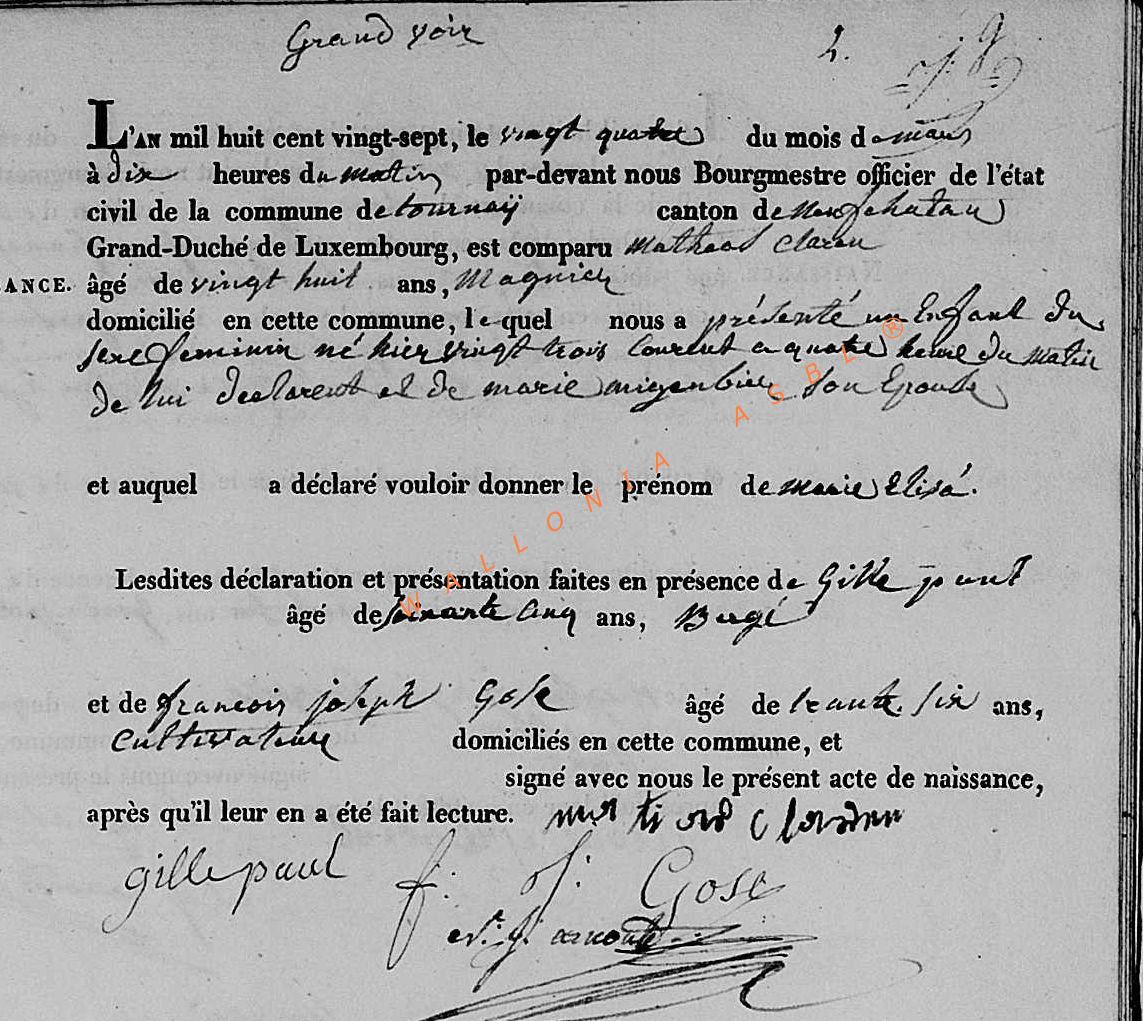 Grand voir
2.
L'AN mil huit cent vingt-sept, le vingt quatre du mois de mars
à dix heures du matin par-devant nous Bourgmestre officier de l'état
civil de la commune de tournaÿ canton de Neufchatau
Grand-Duché de Luxembourg, est comparu
ANCE. âgé de vingt huit ans,
domicilié en cette commune, lequel nous a présenté un Enfant du
sexe feminin né hier vingt trois Courent a quatre heure du Matin
de lui declarent et de marie son Epouse
et auquel a déclaré vouloir donner le prénom de Marie Elisá.
Lesdites déclaration et présentation faites en présence de Gille
âgé de soixante Cinq ans, Bergé
et de francois joseph Gose âgé de trente six ans,
Cultivateur domiciliés en cette commune, et
signé avec nous le présent acte de naissance,
après qu'il leur en a été fait lecture.
gille paul f: J: Gose
WALLONIA ASBL ®